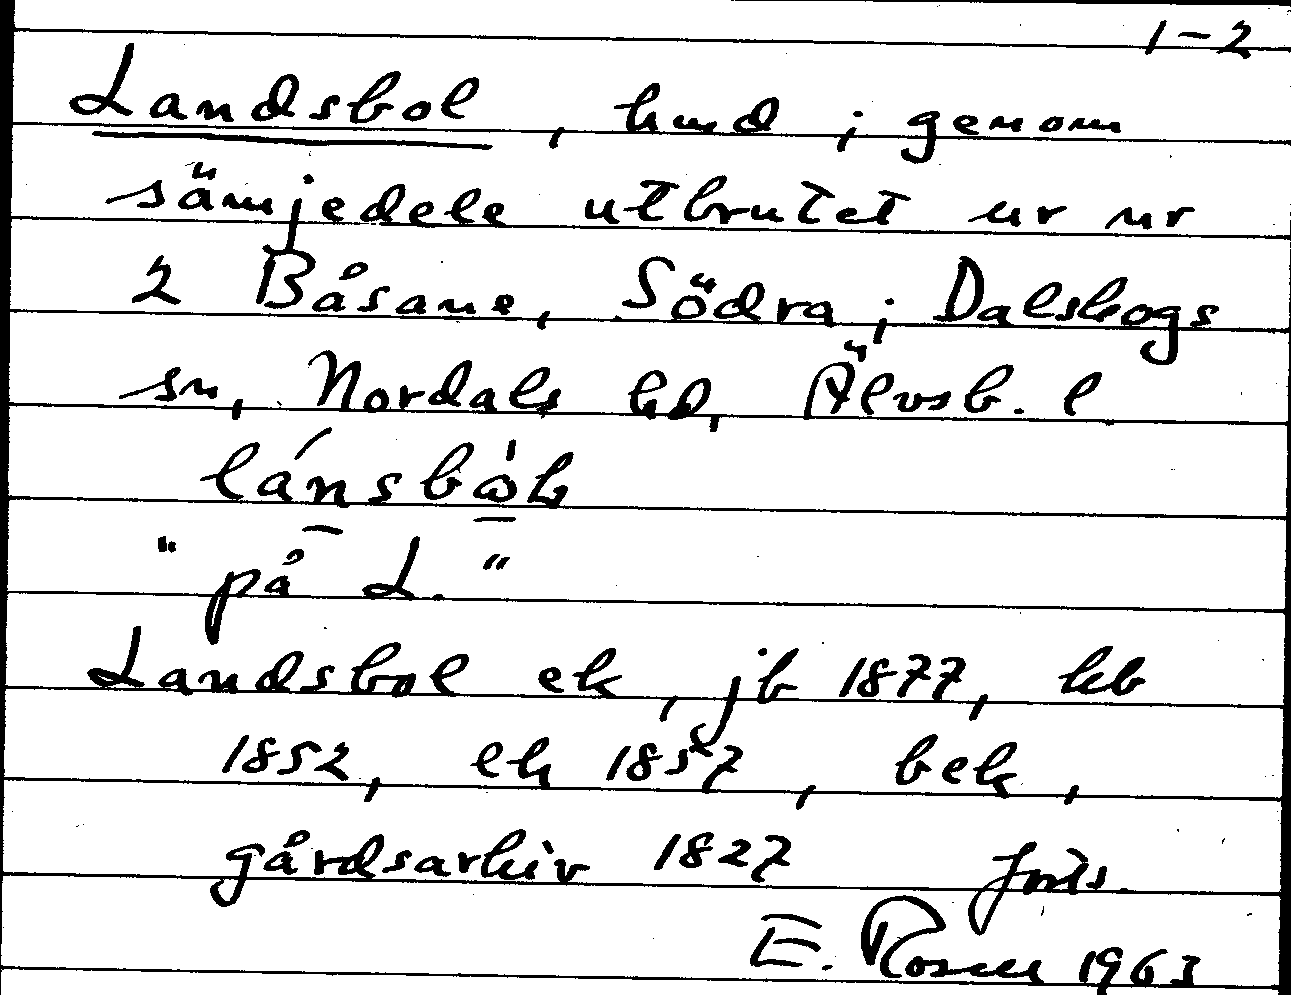 1-2
Landsbol, hmd; genom
sämjedele utbrutet ur nr
2 Båsane, Södra; Dalskogs
sn, Nordals hd, Älvsb. l
lánsbòk
"på L."
Landsbol ek, jb 1877, kb
1852, ek 1857, bek,
gårdsarkiv 1827 forts.
E. Rosell 1963